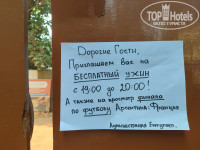 TOP Hotels
Дорогие Гости,
Приглашаем Вас на
БЕСПЛАТНЫЙ УЖИН
с 19:00 до 20:00!
А также на просмотр финала
по футболу Аргентина-Франция
Администрация Evergreen.